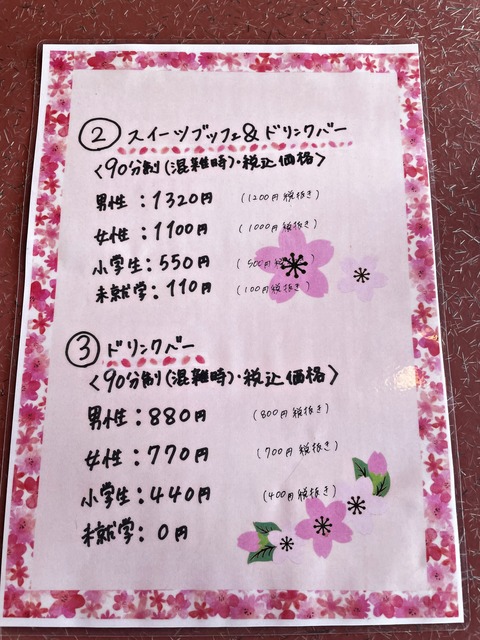 ② スイーツブッフェ&ドリンクバー
〈90分制(混雑時)・税込価格〉
男性：1320円 (1200円税抜き)
女性：1100円 (1000円税抜き)
小学生：550円 (500円税抜き)
未就学：110円 (100円税抜き)
③ ドリンクバー
〈90分制(混雑時)・税込価格〉
男性：880円 (800円税抜き)
女性：770円 (700円税抜き)
小学生：440円 (400円税抜き)
未就学：0円